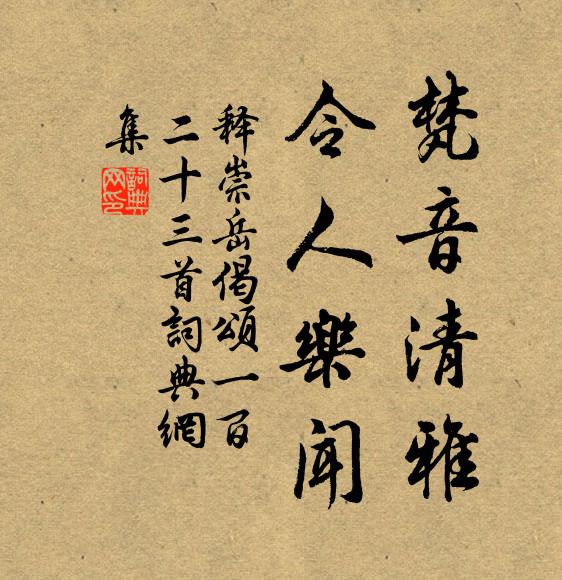 梵音清雅
令人樂聞
释崇岳偈頌一百
二十三首詞典網
集
詞典网印